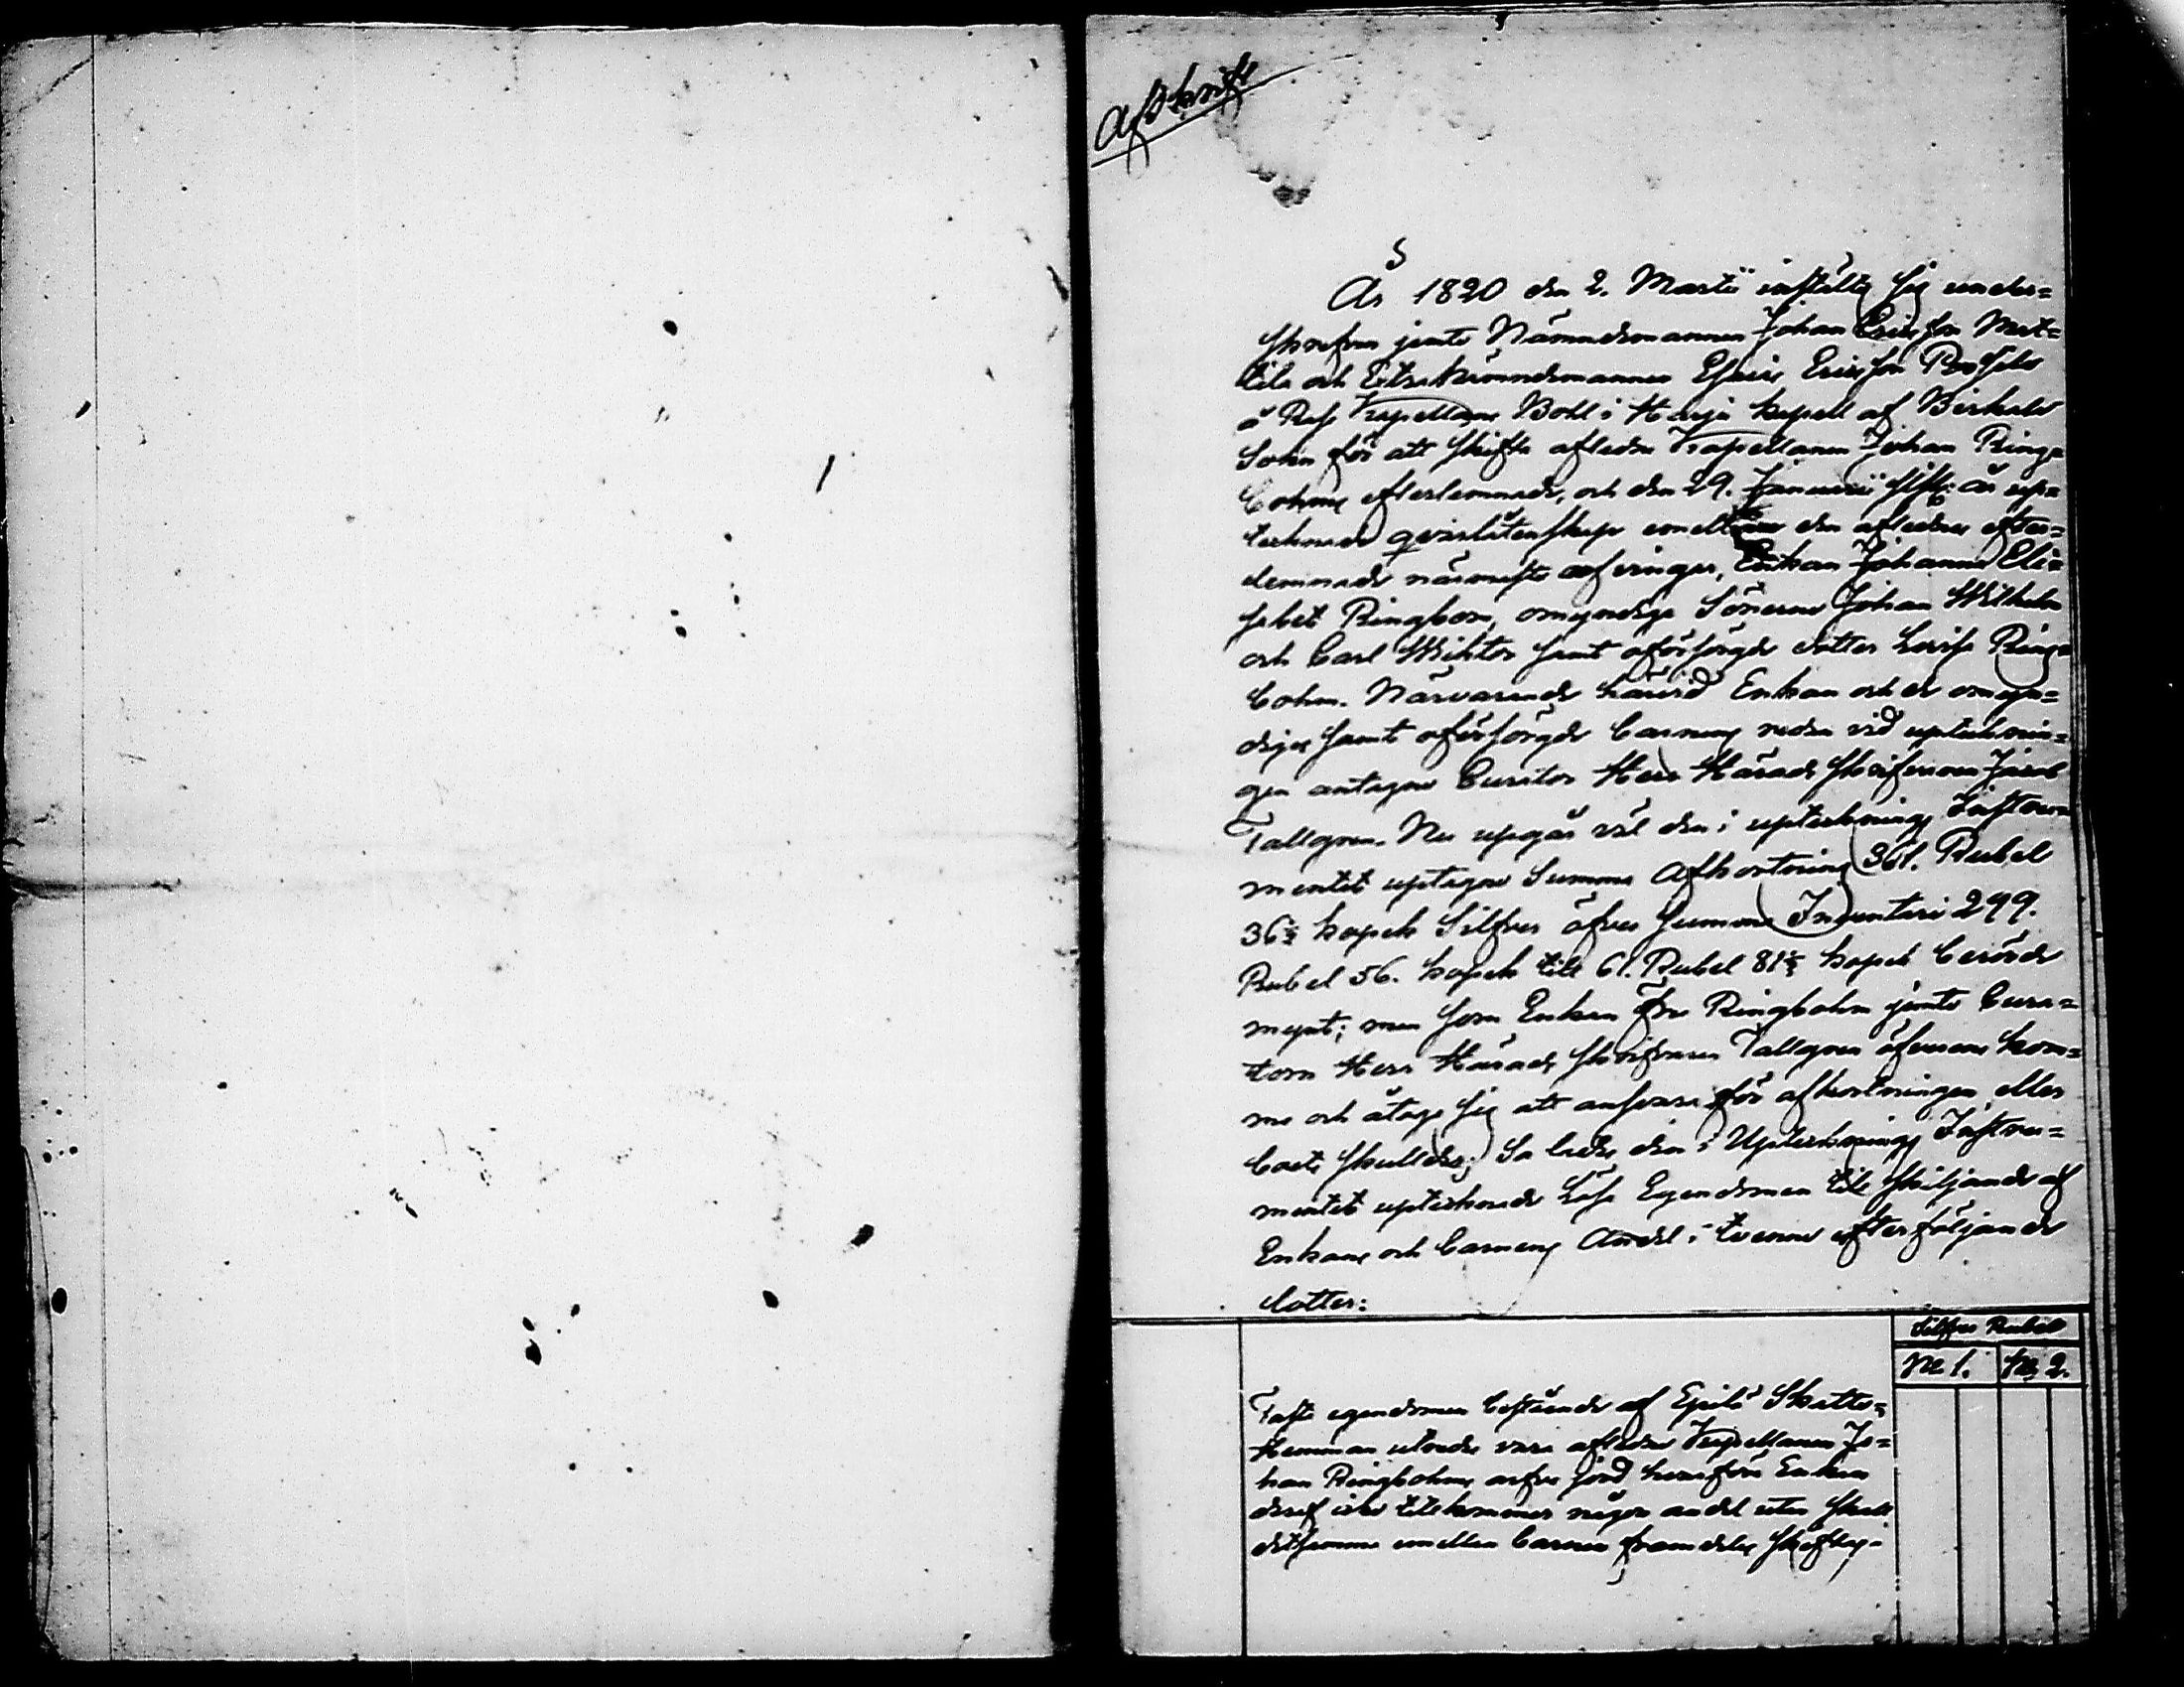 Afskrift
År 1820 den 2. Martii instälte sig under=
skrefven jemte Nämndemannen Johan Ericsson Mat=
tila och Extra Nämndemannen Ericsson
å Kapellans Bohl i Harju kapell af Birkala
Sokn för att skifta afledne Kapellanen Johan Ring=
bohms efterlemnade, och den 29. Januarii sistl: år up=
teknade qvarlåtenskap emellan den aflednes efter=
lemnade närmaste arfvingar, Enkan Johanna Eli=
sabet Ringbom, omyndige Sönerne Johan Wilhelm
och Carl Wiktor samt oförsörgde dotter Lovisa Ring=
bohm. Närvarande härvid Enkan och de omyn=
dige samt oförsörgde barnens redan vid upteknin=
gen antagne Curator Herr Härads skrifvaren Jacob
Tallgren. Nu upgår väl den i uptecknings Instru=
mentet uptagne Summa Afkortning 361. Rubel
36½ kopek Silfver öfver summa Inventarii 299.
Rubel 56. kopek till 61. Rubel 81½ kopek
men som Enkan Fru Ringbohm jemte Cura=
torn Herr Härads skrifvaren Tallgren öfverens kom=
me och åtaga sig att ansvara för afkortningen eller
boets skulder; Så lades den i Uptecknings Instru=
mentet uptecknade Lösa Egendomen till skiljande af
Enkans och barnens Andel i tvenne efterföljande
lotter:
Silfver Rubel
No 1. No 2.
Fasta egendomen bestående af Skatte=
Hemman vara afledne Kapellanen Jo=
han Ringbohms arfve jord, hvarföre Enkan
deraf icke tillkommer någon andel utan skall
detsamma emellan barnen framdeles skiftas